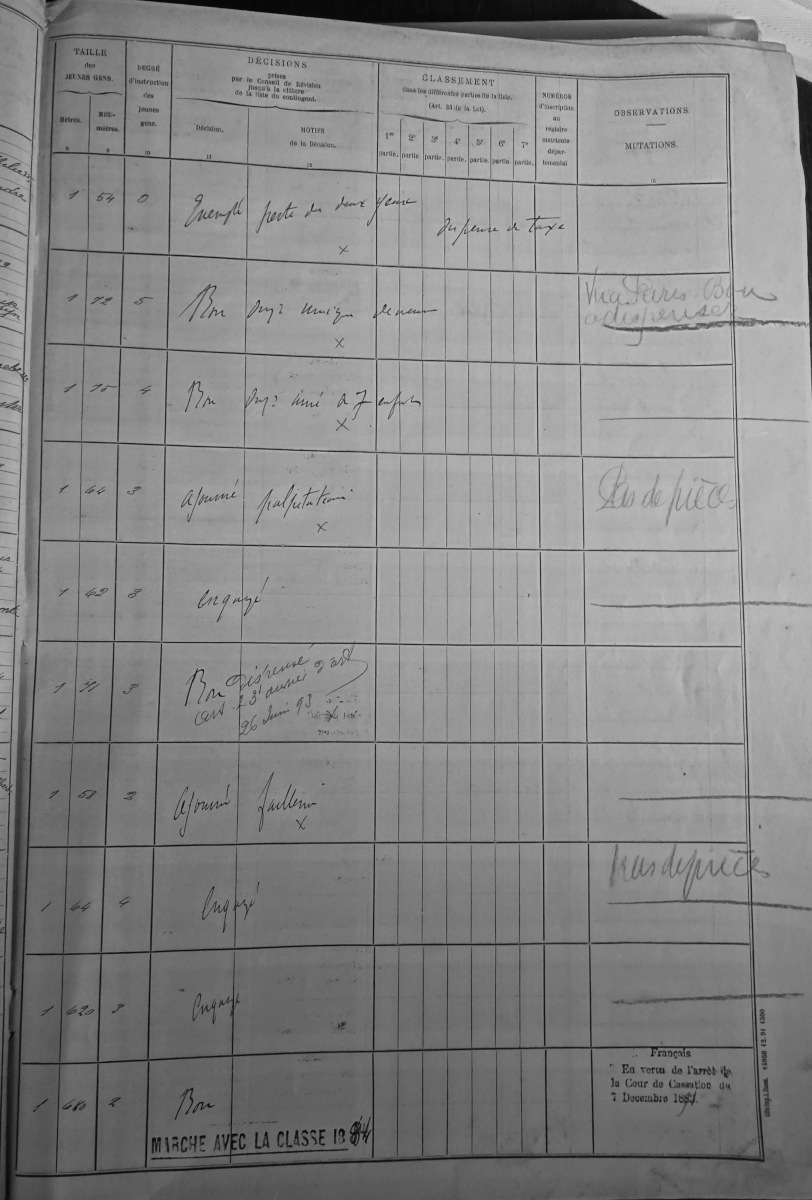 TAILLE
des
JEUNES GENS.
Mètres.
MILLI-
mètres.
8
9
DEGRÉ
d'instruction
des
jeunes
gens.
10
DÉCISIONS
prises
par le Conseil de Révision
jusqu'à la clôture
de la liste du contingent.
Décision.
MOTIFS
de la Décision.
11
12
CLASSEMENT
dans les différentes parties de la liste.
(Art. 31 de la Loi).
1re partie. 2e partie 3e partie. 4e partie. 5e partie. 6e partie 7e partie.
NUMÉROS
d'inscription
au
régistre
matricule
dépar-
temental
OBSERVATIONS.
MUTATIONS.
1 54 0 Exempté perte des deux yeux dispense de taxe
x
1 72 5 Bon unique de veuve
x
Vu à Paris Bon
à dispenser
1 75 4 Bon ainé de 7 enfants
x
1 64 3 ajourné palpitations
x
Pas de pièces
1 62 3 engagé
1 71 3 Bon Dispensé
art 23
26 Juin 93
x
1 58 2 ajourné faiblesse
x
1 64 4 Engagé
pas de pièces
1 620 3 Engagé
1 680 2 Bon
MARCHE AVEC LA CLASSE 18
Français
En vertu de l'arrêt de
la Cour de Cassation du
7 Décembre 1891.